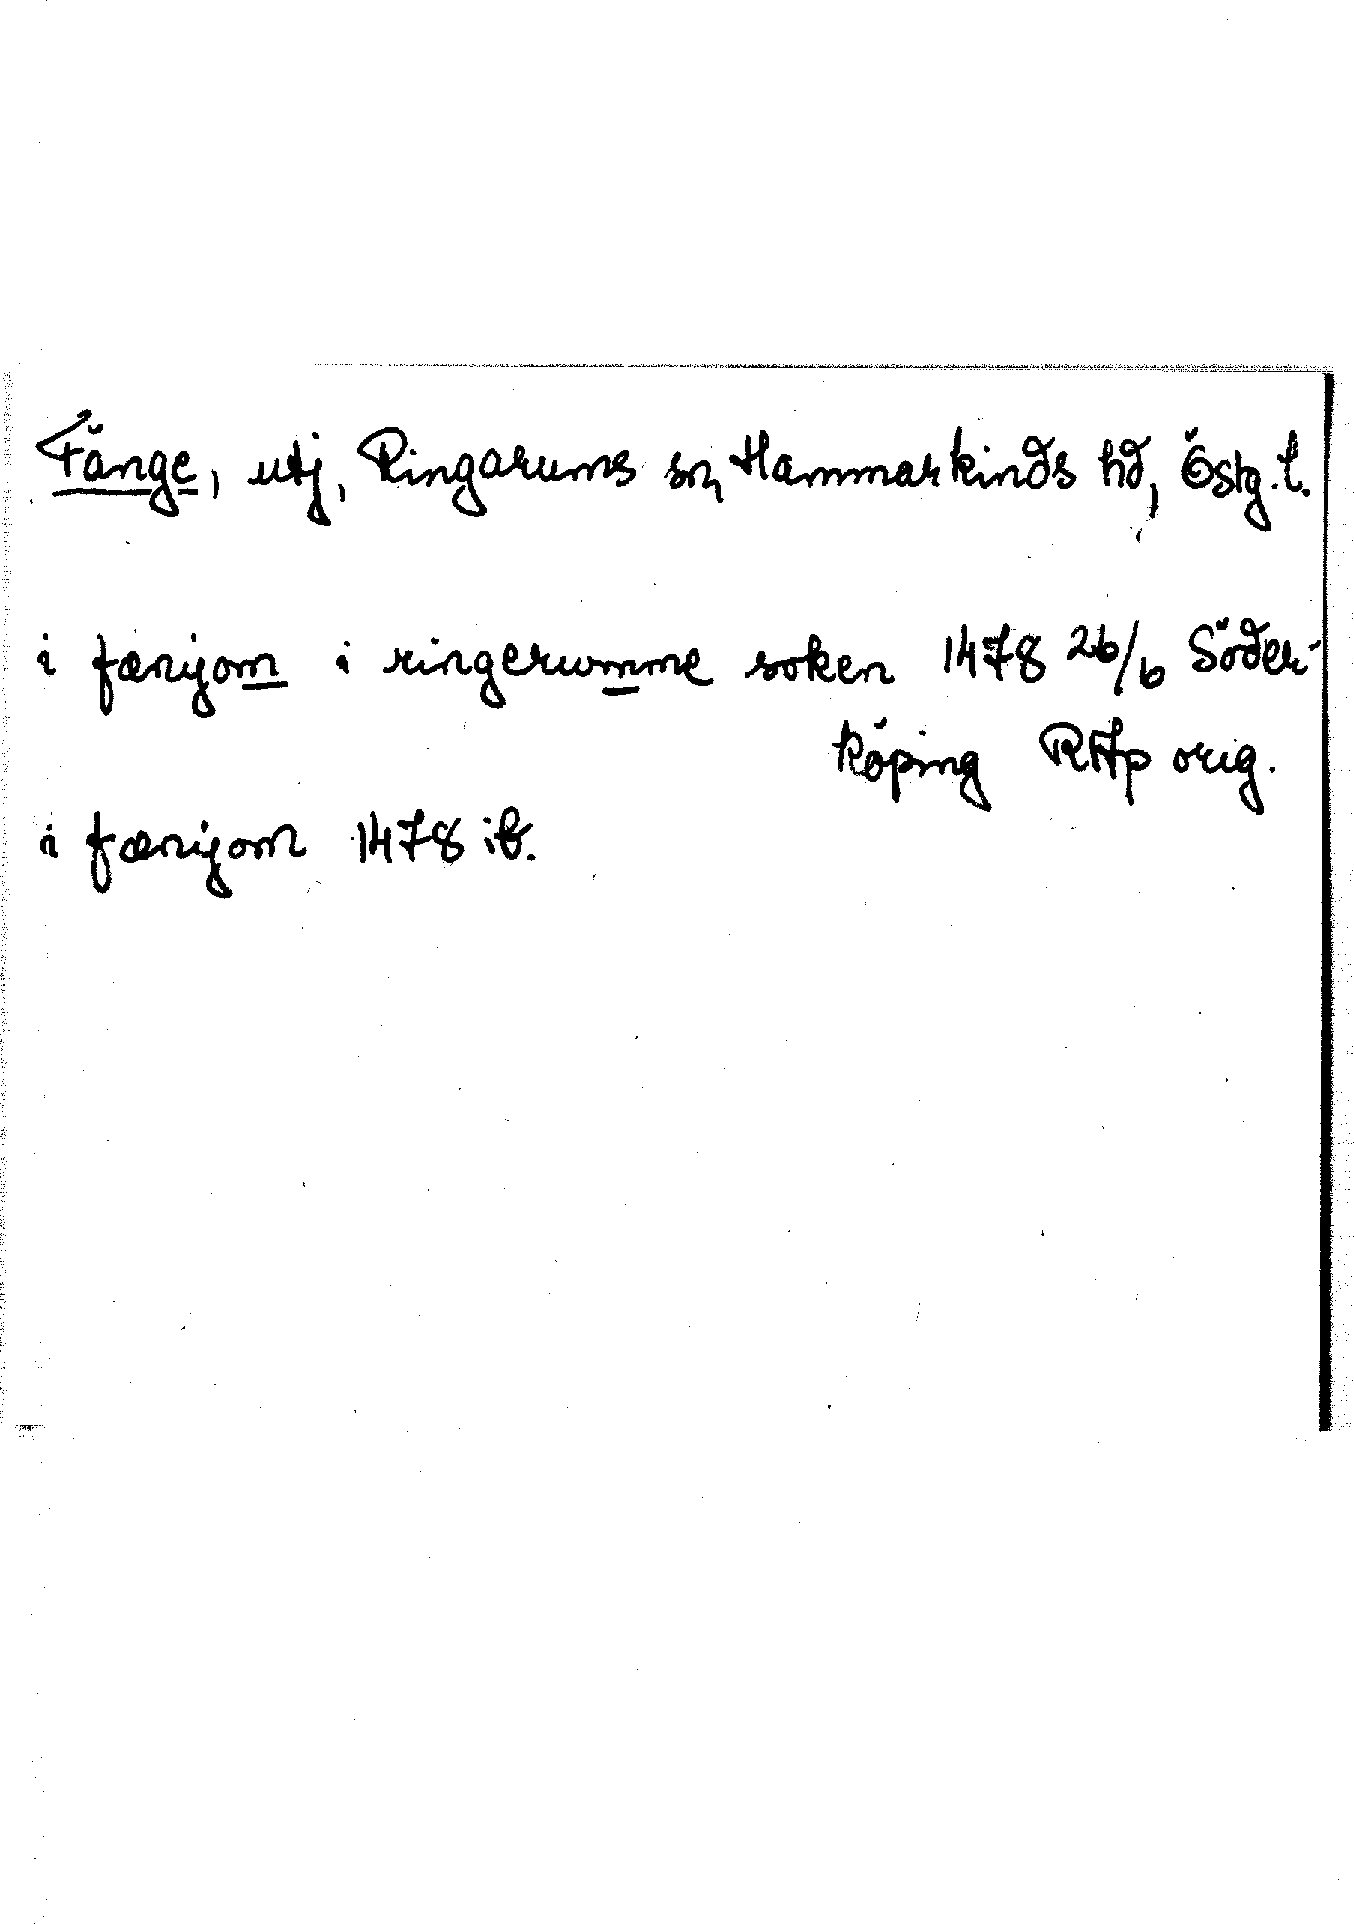 Fänge, utj, Ringarums sn, Hammarkinds hd, Östg. l.
i fænyom i ringerumme soken 1478 26/6 Söder-
köping RAp orig.
i fænyom 1478 ib.